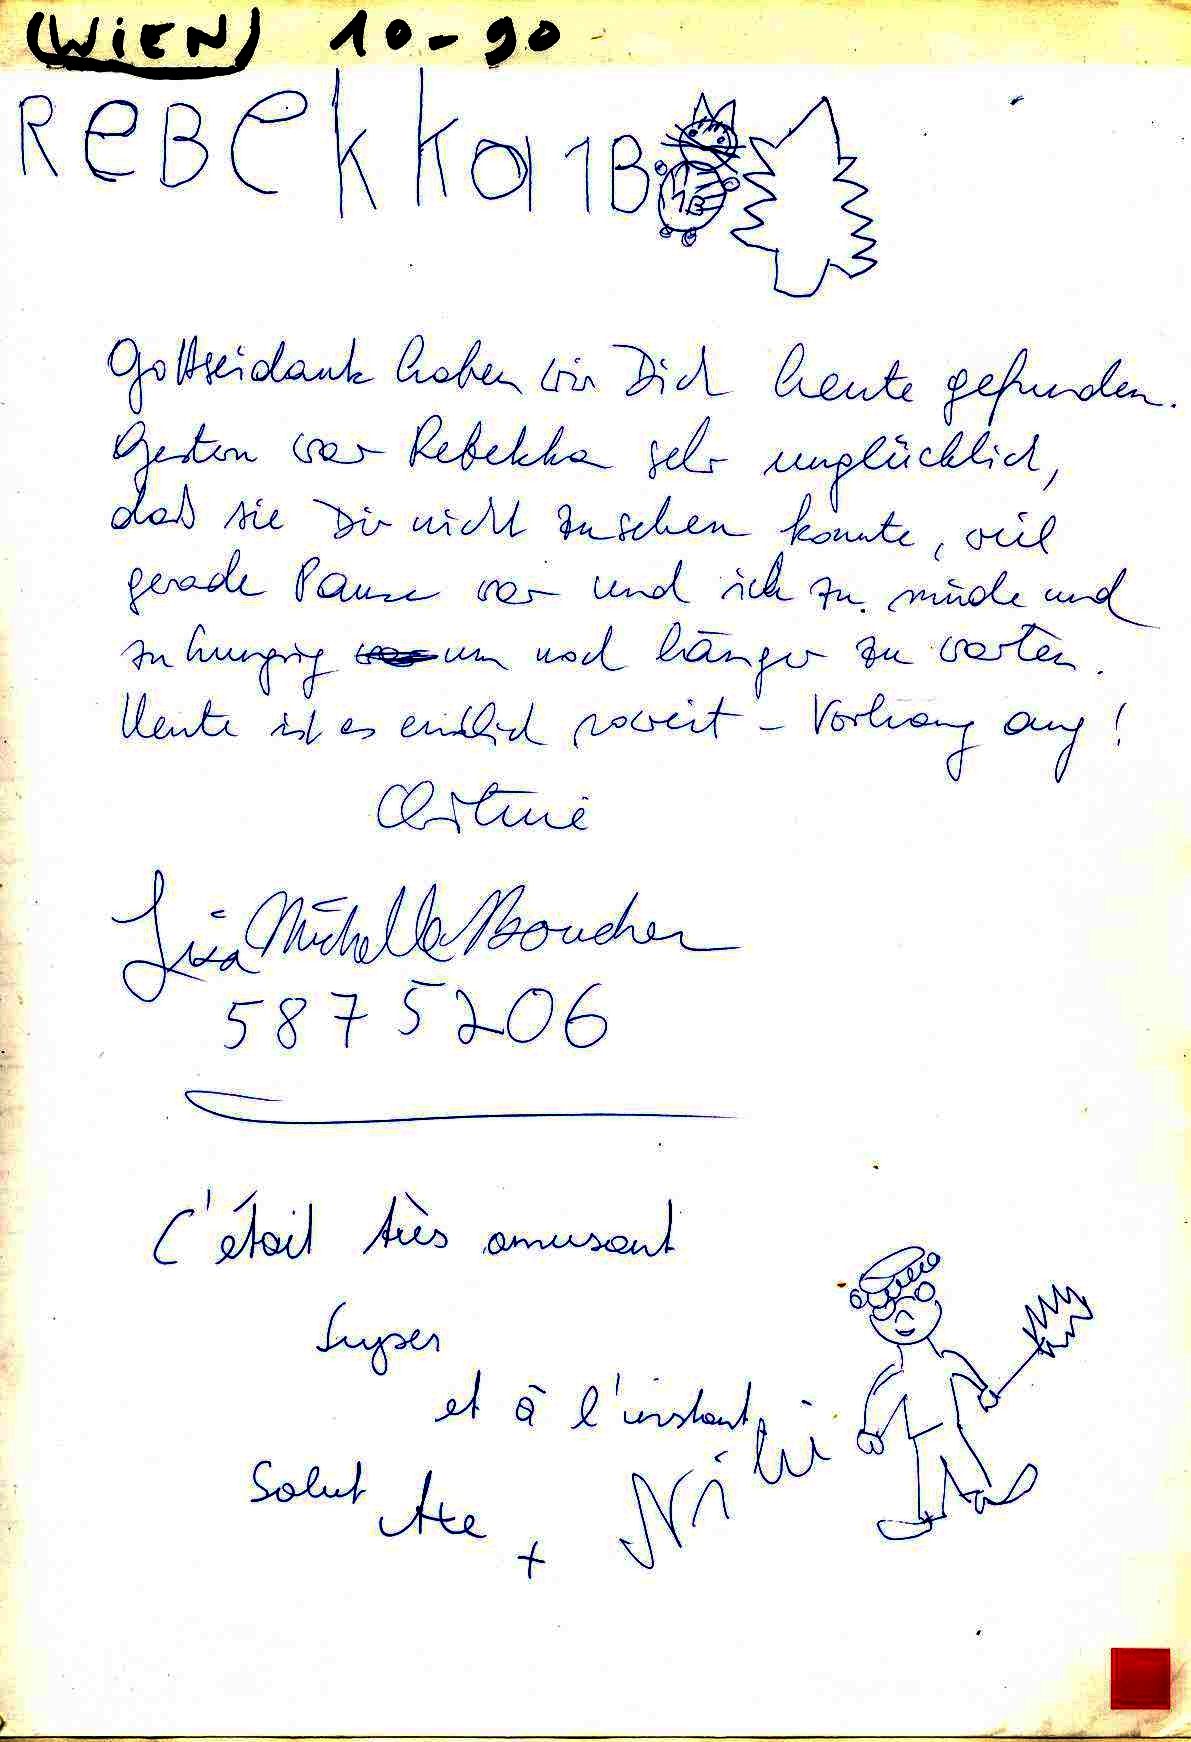 (WiEN) 10-90
ReBekka 1B
1B
Gottseidank haben wir Dich heute gefunden.
Gestern war Rebekka sehr unglücklich,
daß sie Dir nicht zusehen konnte, weil
gerade Pause war und ich zu müde und
zu hungrig um noch länger zu warten.
Heute ist es endlich soweit - Vorhang auf!
Christine
Lisa Michelle Boucher
5875206
C'était très amusant
Super
et à l'instant
Salut
+